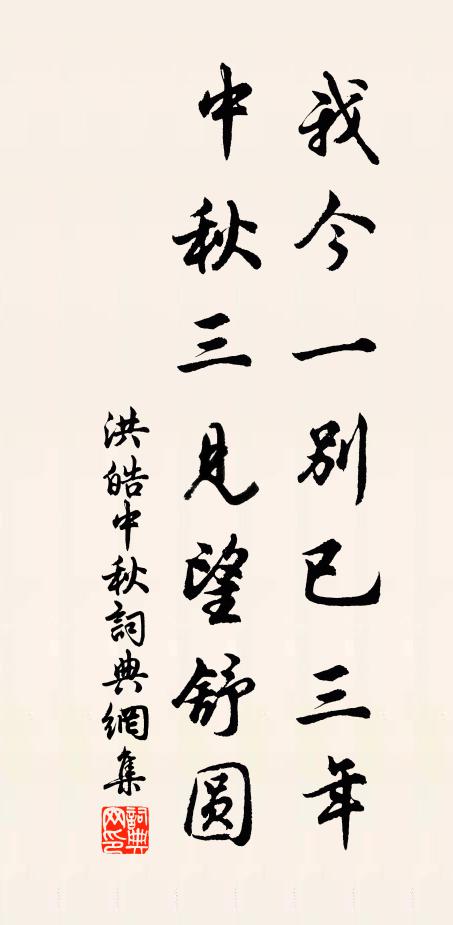 我今一别已三年
中秋三見望舒圆
洪皓中秋詞典網集
詞典
网印